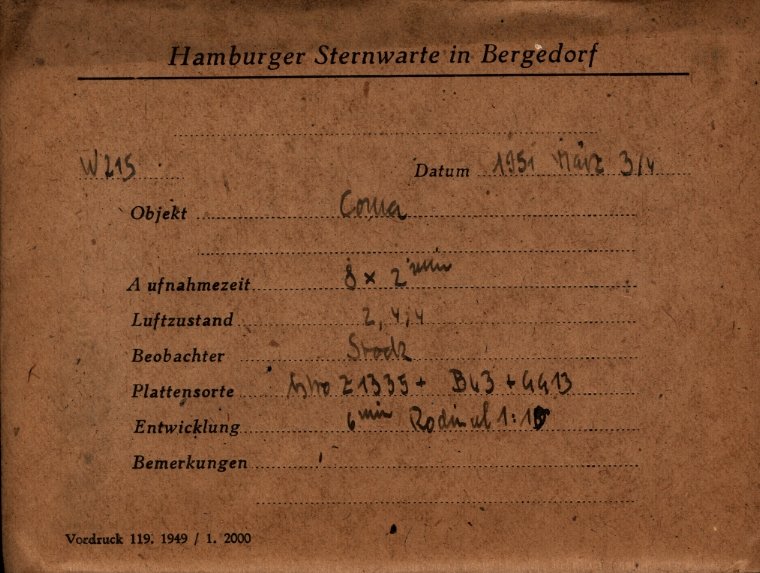 Hamburger Sternwarte in Bergedorf
W215 Datum 1951 März 3/4
Objekt Coma
Aufnahmezeit 8 x 2 min
Luftzustand 2, 4,4
Beobachter Stock
Plattensorte Z1335 + BG3 + GG13
Entwicklung 6 min Rodinal 1:10
Bemerkungen
Vordruck 119. 1949 / 1. 2000